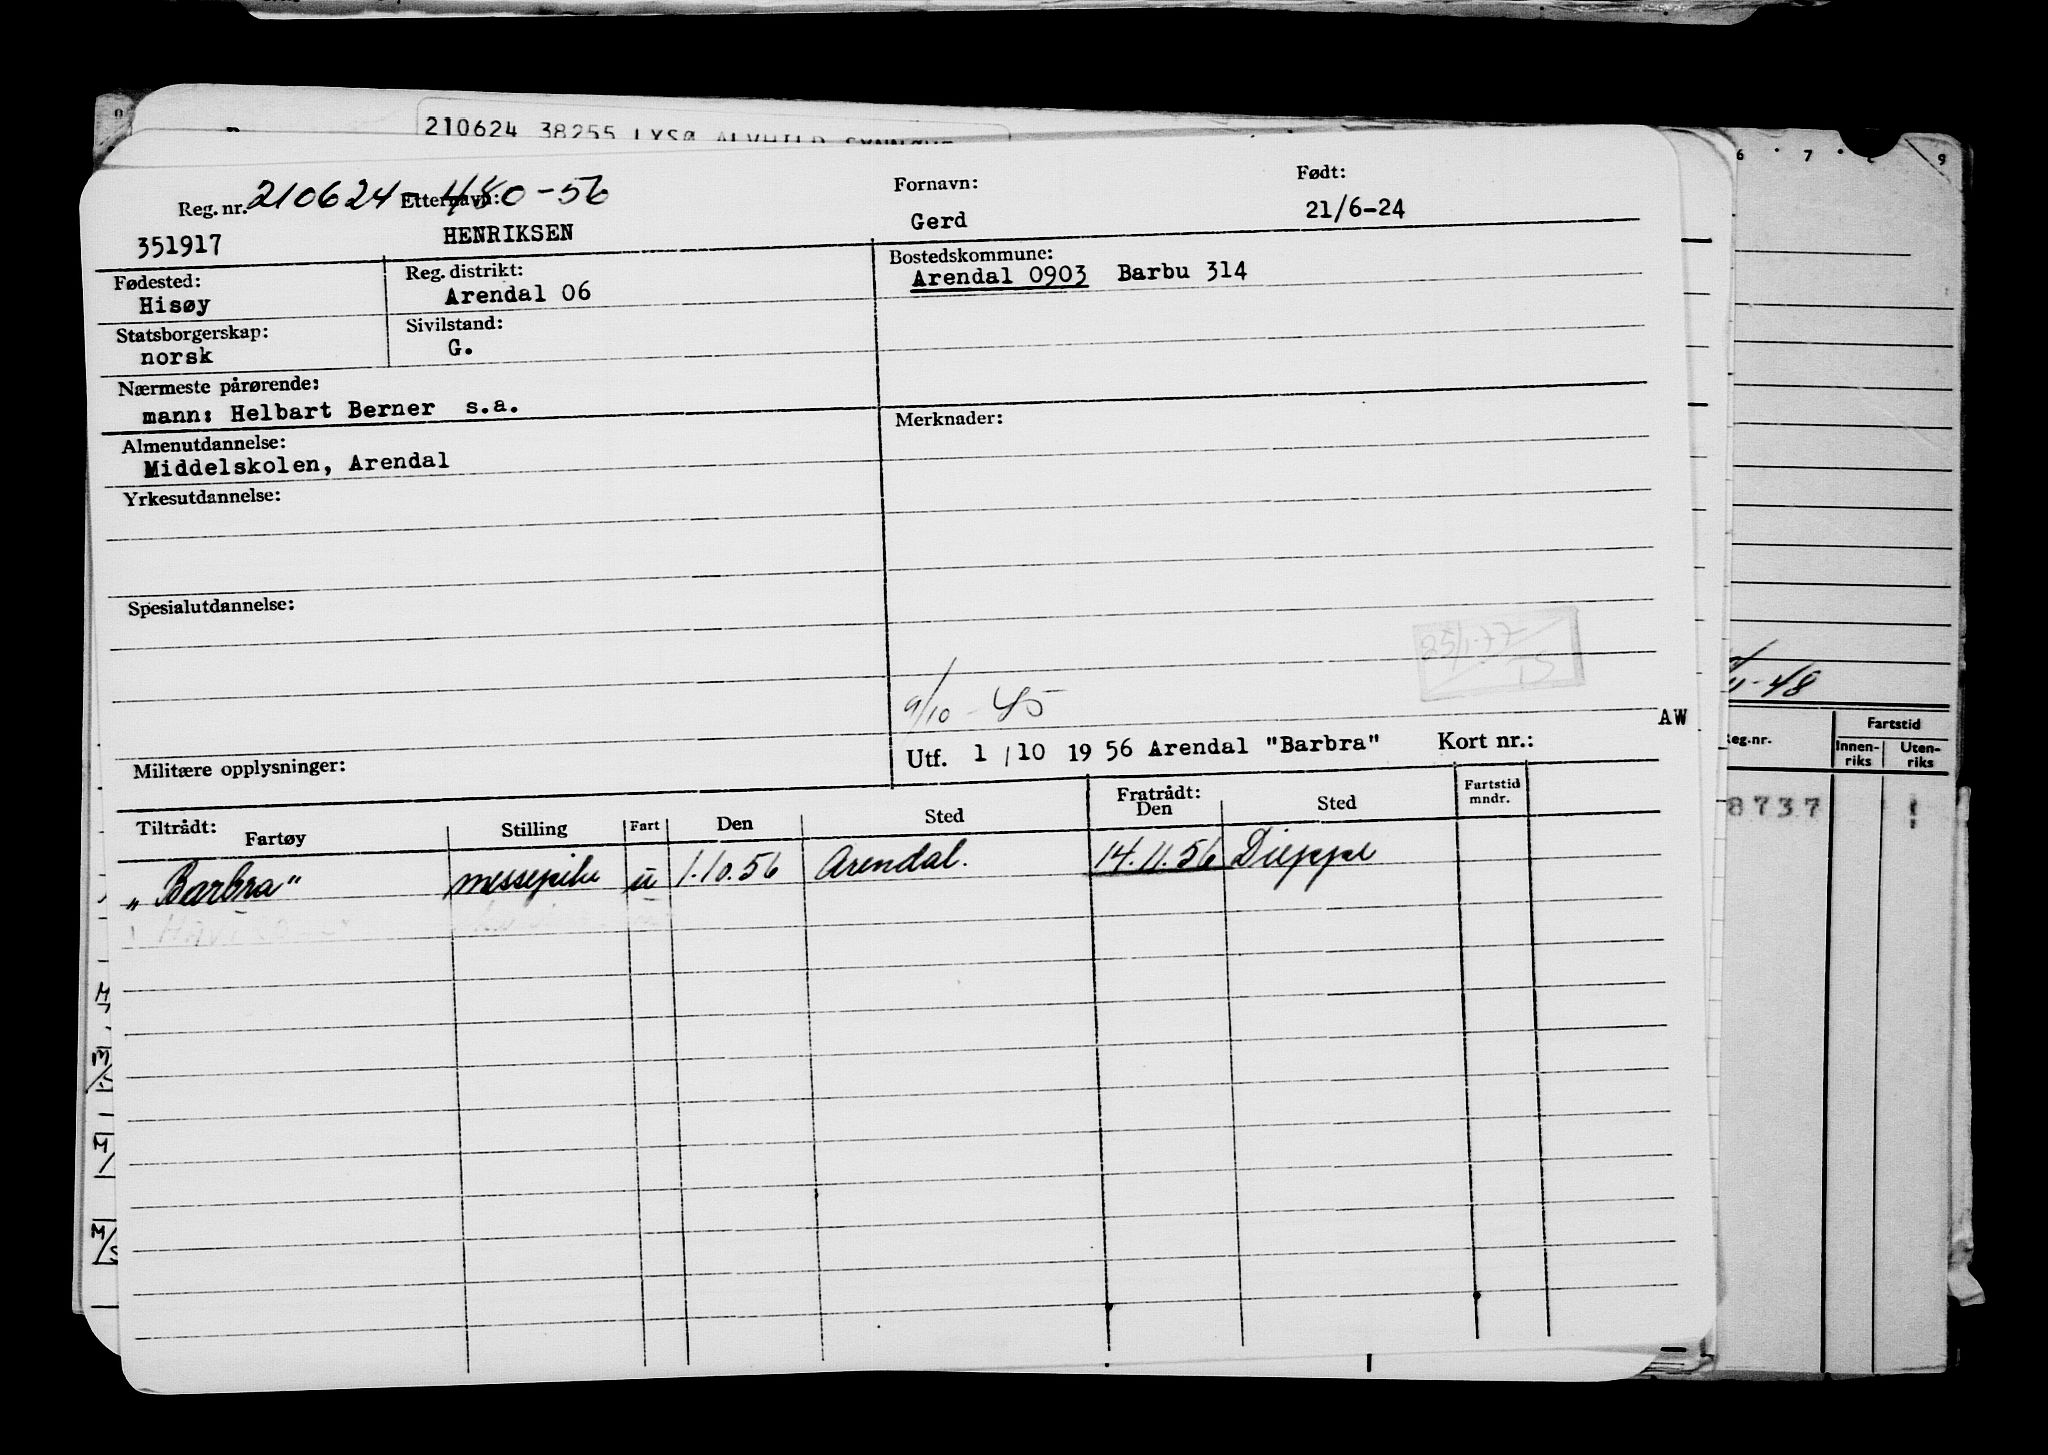 210624 38255 LYSØ ALVHILD SYNNØVE
Reg. nr. 210624 - 480-56
351917
Etternavn:
HENRIKSEN
Fornavn:
Gerd
Født:
21/6-24
Fødested:
Hisøy
Reg. distrikt:
Arendal 06
Bostedskommune:
Arendal 0903 Barbu 314
Statsborgerskap:
norsk
Sivilstand:
G.
Nærmeste pårørende:
mann: Helbart Berner s.a.
Almenutdannelse:
Middelskolen, Arendal
Merknader:
Yrkesutdannelse:
Spesialutdannelse:
25/1-77
TS
9/10 - 45
AW
Militære opplysninger:
Utf. 1 / 10 19 56 Arendal "Barbra" Kort nr.:
Tiltrådt:
Fartøy Stilling Fart Den Sted
Fratrådt:
Den Sted Fartstid mndr.
„Barbra" messepike u 1.10.56 Arendal. 14.11.56 Dieppe
6 7 9
11-48
Reg.nr.
Fartstid
Innen-riks Uten-riks
8737
M
M/S
M/
M/S